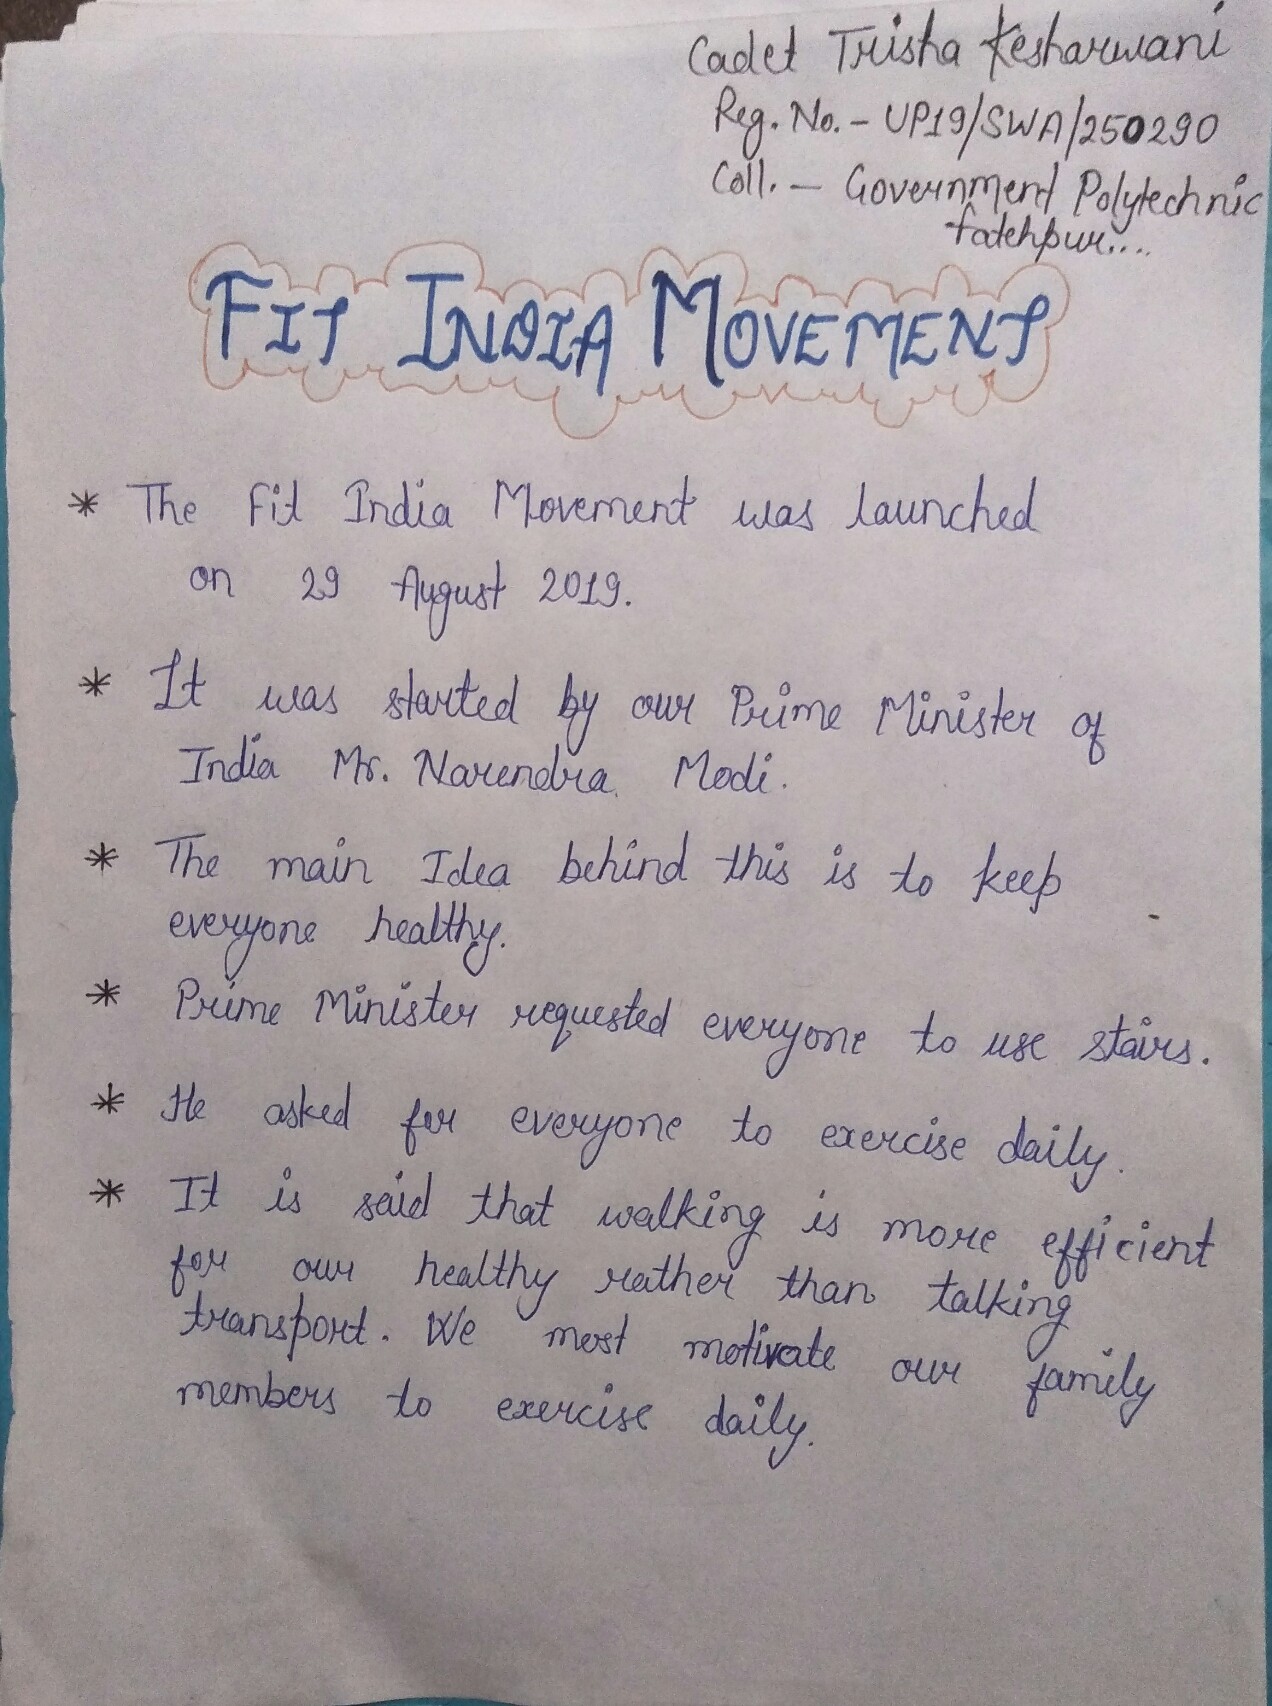 Cadet Trisha Kesharwani
Reg. No. - UP19/SWA/250290
Coll. - Government Polytechnic
fatehpur....
FIT INDIA MOVEMENT
* The Fit India Movement was launched
on 29 August 2019.
* It was started by our Prime Minister of
India Mr. Narendra Modi.
* The main Idea behind this is to keep
everyone healthy.
* Prime Minister requested everyone to use stairs.
* He asked for everyone to exercise daily.
* It is said that walking is more efficient
for our healthy rather than talking
transport. We most motivate our family
members to exercise daily.